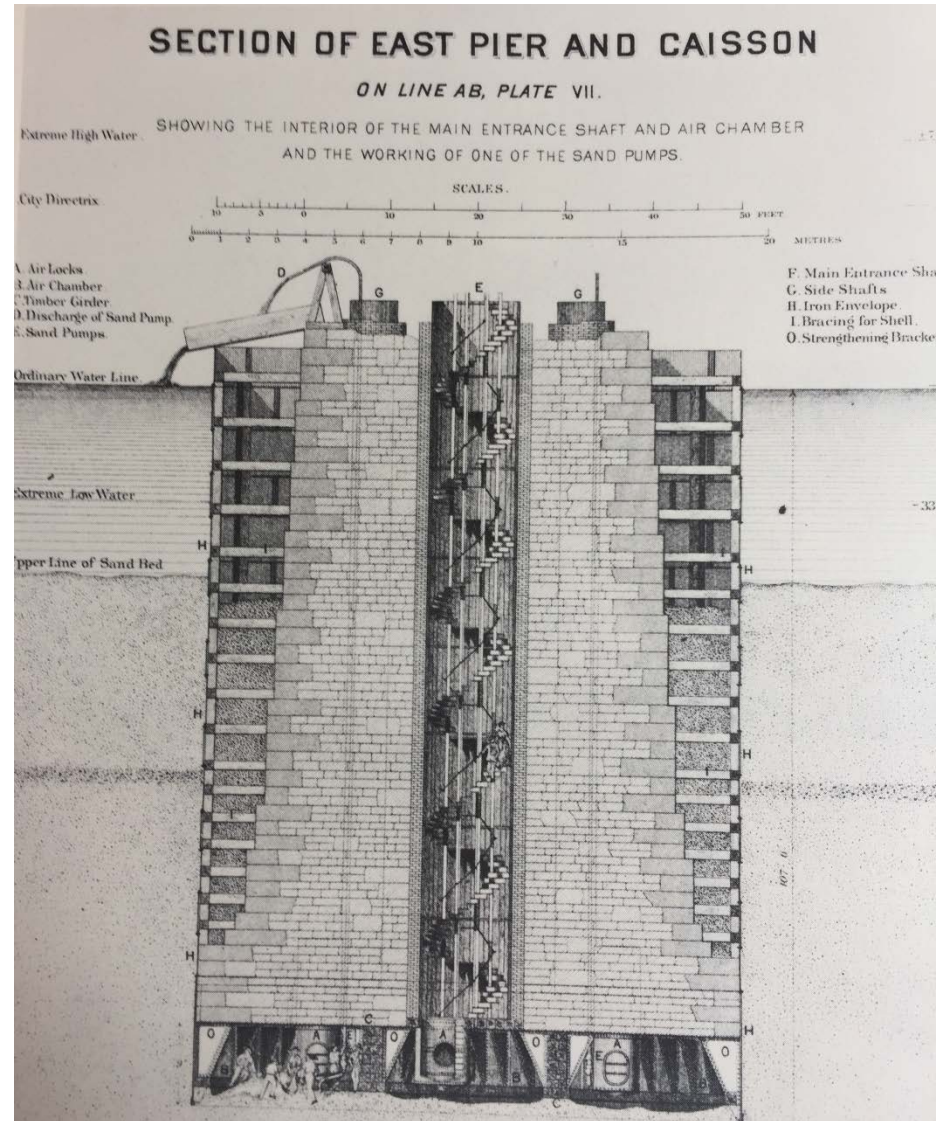 SECTION OF EAST PIER AND CAISSON
ON LINE AB, PLATE VII.
SHOWING THE INTERIOR OF THE MAIN ENTRANCE SHAFT AND AIR CHAMBER
AND THE WORKING OF ONE OF THE SAND PUMPS.
Extreme High Water
City Directrix
SCALES.
10 5 0 10 20 30 40 50 FEET
0 1 2 3 4 5 6 7 8 9 10 15 20 METRES
A. Air Locks
B. Air Chamber
C. Timber Girder
D. Discharge of Sand Pump
E. Sand Pumps
F. Main Entrance Sha
G. Side Shafts
H. Iron Envelope
I. Bracing for Shell
O. Strengthening Bracke
D G E G
Ordinary Water Line
Extreme Low Water
-33
H I H
Upper Line of Sand Bed
H H
I I
107. 6
H H
O A E C O A O E A O
B B B
C